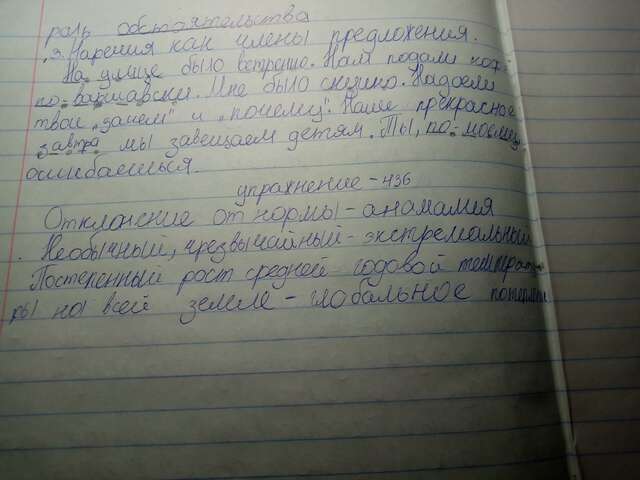 роль обстоятельства
3. Наречия как члены предложения.
На улице было ветренно. Нам подали коф-
по-варшавски. Мне было скучно. Надоели
твои „зачем" и „почему". Наше прекрасное
завтра мы завещаем детям. Ты, по-моему,
ошибаешься.
упражнение-436
Отклонение от нормы - анамалия
Необычный, чрезвычайный - экстремальный
Постепенный рост средней годовой температу
ры на всей земле - глобальное